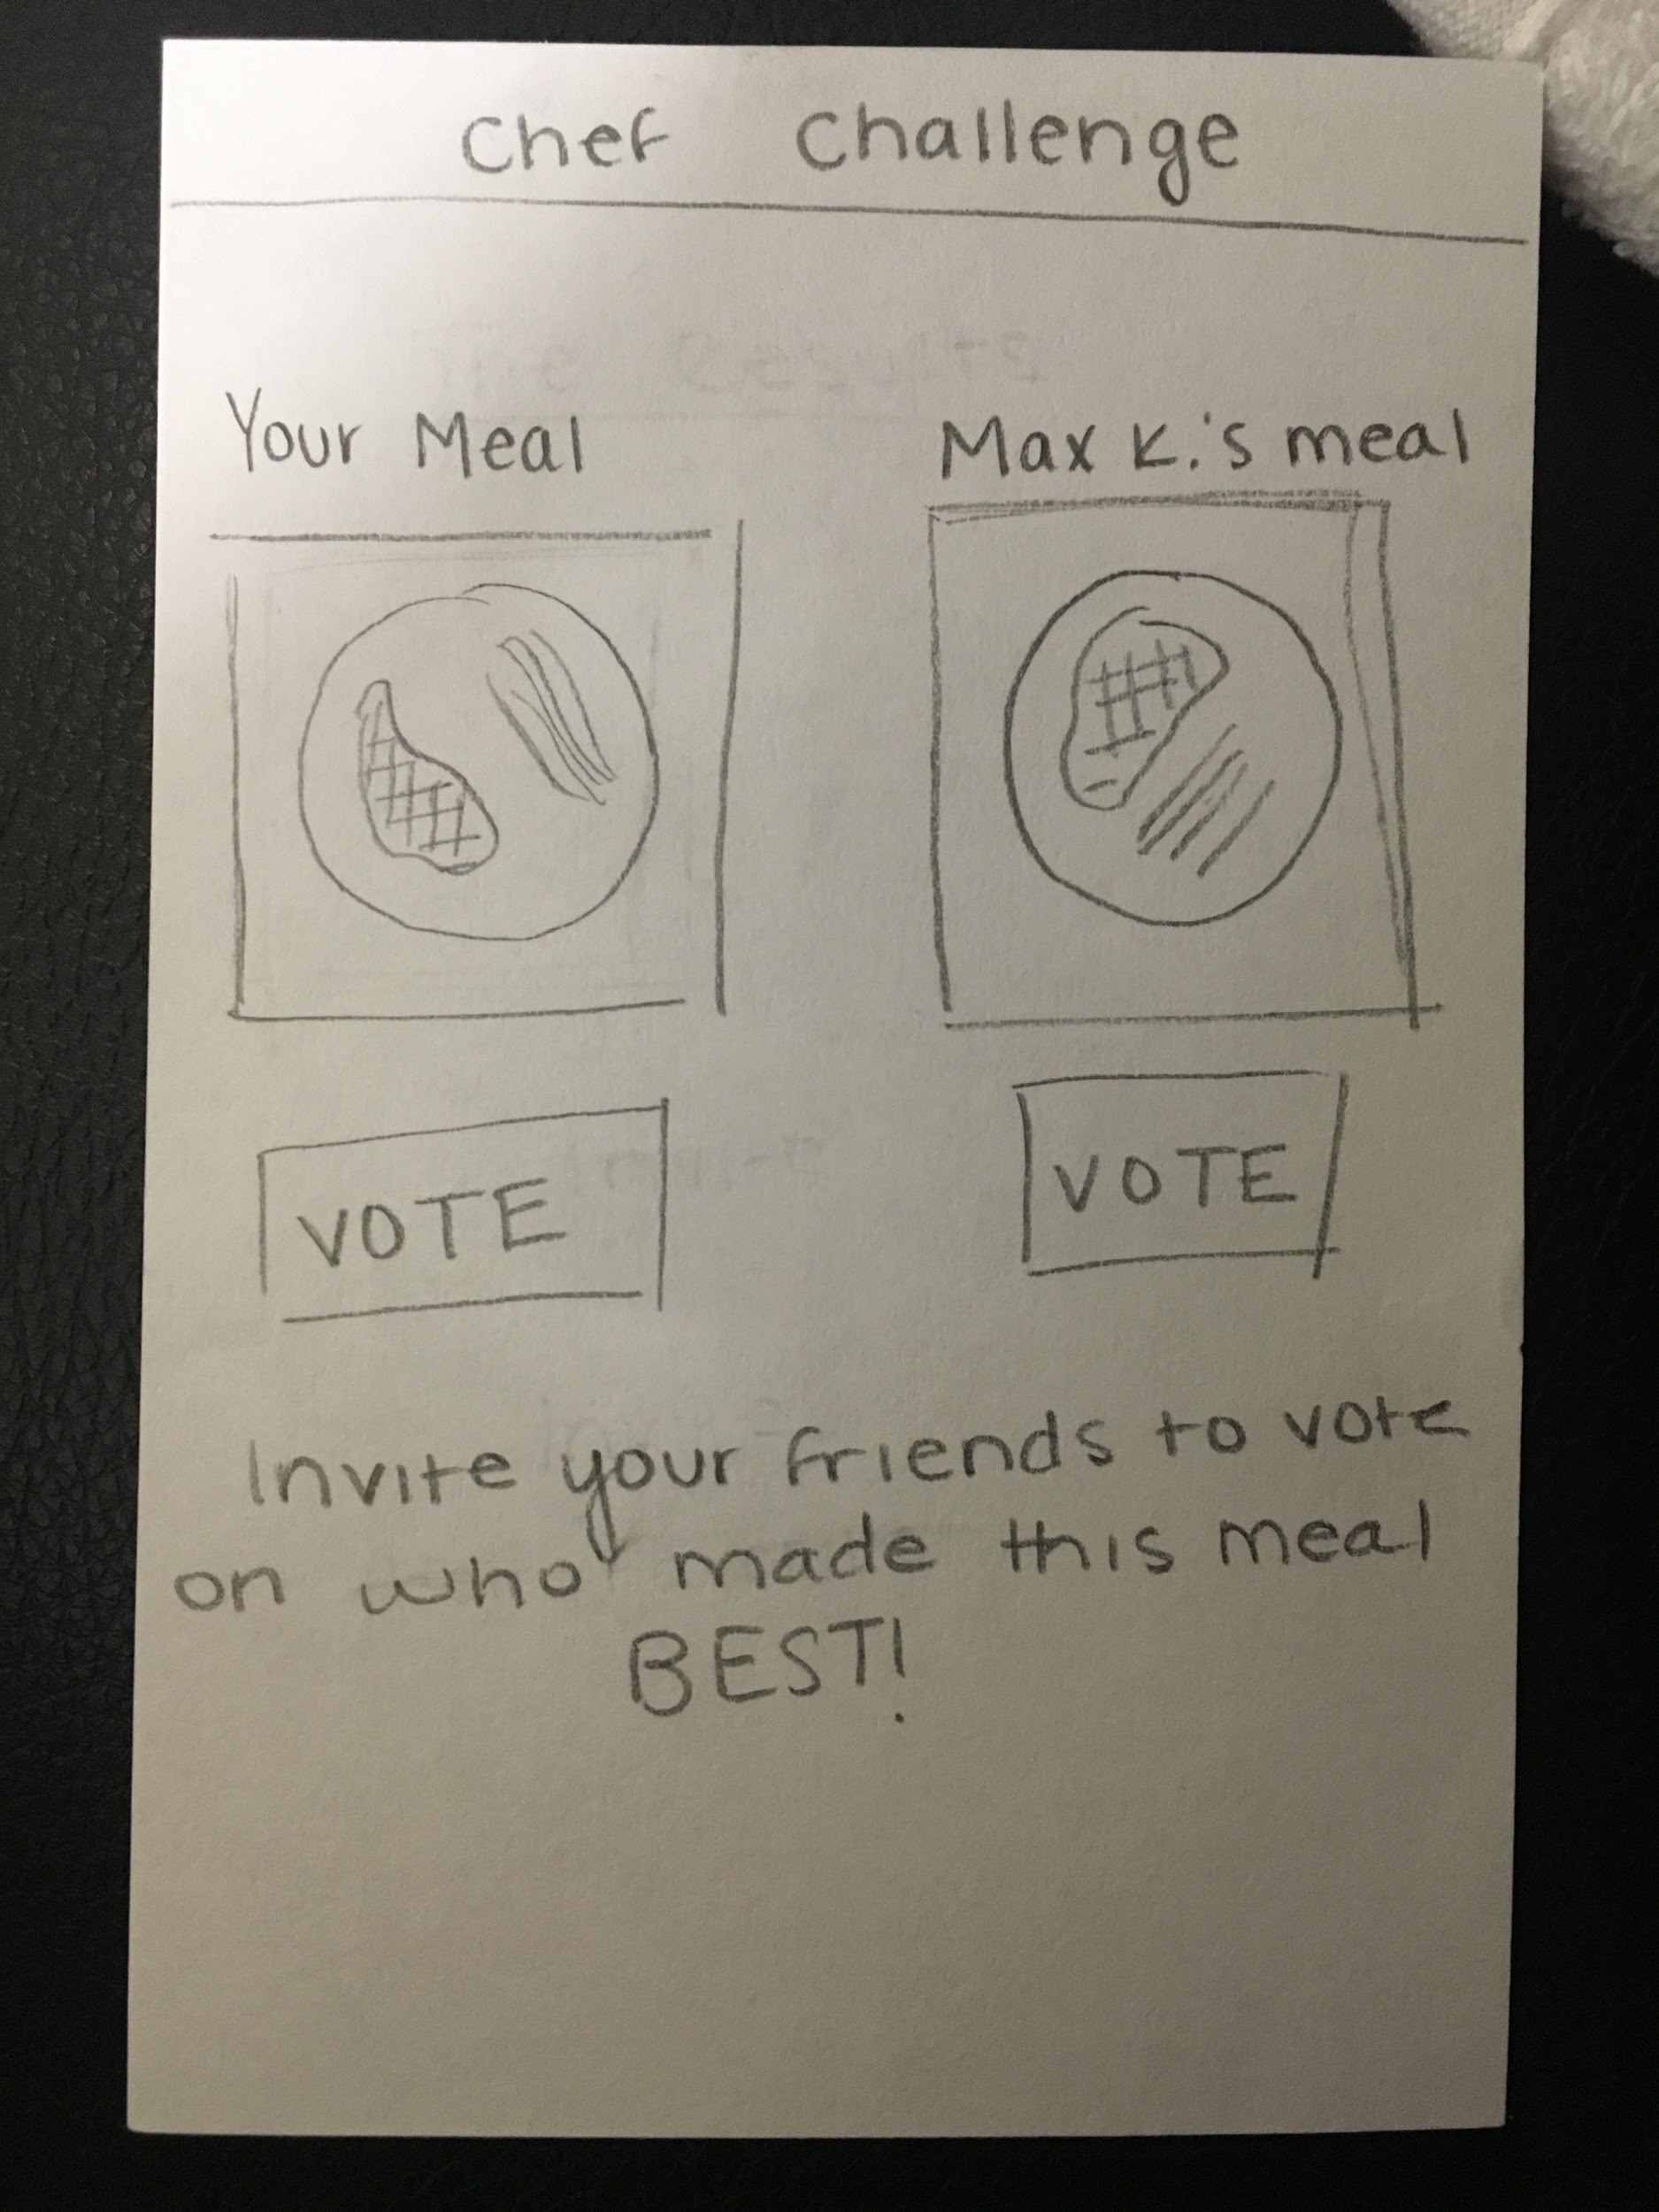 Chef Challenge
Your Meal
Max K.'s meal
VOTE
VOTE
Invite your friends to vote
on who made this meal
BEST!